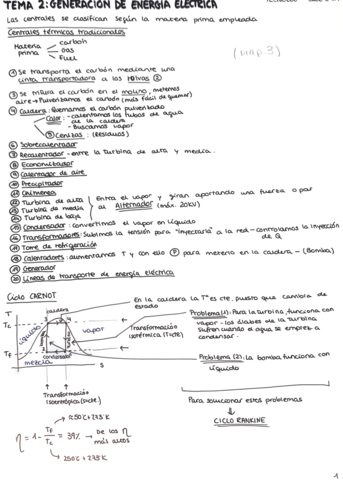 TEMA 2: GENERACIÓN DE ENERGÍA ELÉCTRICA
Las centrales se clasifican según la materia prima empleada
Centrales térmicas tradicionales
Materia prima = carbón
Gas
Fuel
(map 3)
① Se transporta el carbón mediante una cinta transportadora a las tolvas ②
③ Se tritura el carbón en el molino, metemos aire → Pulverizamos el carbón (más fácil de quemar)
④ Caldera: Quemamos el carbón pulverizado
Calor: - calentamos los tubos de agua de la caldera
- Buscamos vapor
⑤ Cenizas: (Residuos)
⑥ Sobrecalentador
⑦ Recalentador - entre la turbina de alta y media.
⑧ Economizador
⑨ Calentador de aire
⑩ Precipitador
⑪ Chimenea
⑫ Turbina de alta
Turbina de media
Turbina de baja
Entra el vapor y giran aportando una fuerza o par al Alternador (máx. 20kV)
⑮ Condensador: convertimos el vapor en líquido
⑯ Transformadores: Subimos la tensión para "inyectarla" a la red - controlamos la inyección de Q
Torre de refrigeración
⑱ Calentadores: aumentamos T y con ello para meterla en la caldera - (Bomba)
⑲ Generador
⑳ Líneas de transporte de energía eléctrica
Ciclo CARNOT
En la caldera la Tª es cte, puesto que cambia de estado
T
Tc
TF
S
caldera
líquido
vapor
mezcla
condensador
Transformación Isotérmica (T=cte)
Transformación Isentrópica (S=cte)
Problema (1): Para la turbina, funciona con vapor - los álabes de la turbina sufren cuando el agua se empieza a condensar.
Problema (2): La bomba funciona con líquido
Para solucionar estos problemas
CICLO RANKINE
η = 1 - TF/Tc = 39% → De los η más altos
1